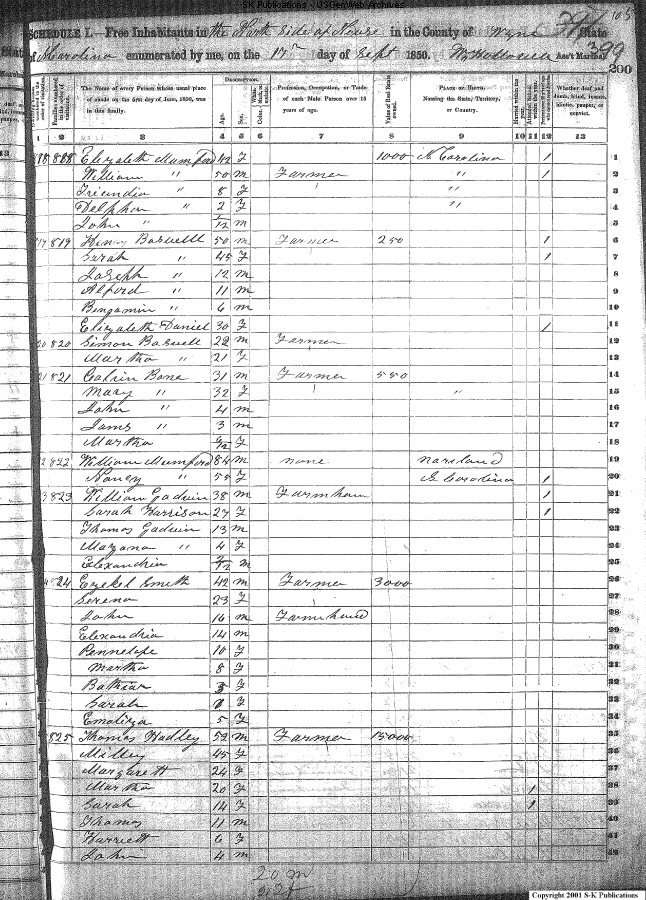 S-K Publications - USGenWeb Archives
SCHEDULE I.—Free Inhabitants in the North Side of Neuse in the County of Wayne State
of Carolina enumerated by me, on the 17th day of Sept 1850. Ass't Marshal 399
200
The Name of every Person whose usual place of abode on the first day of June, 1850, was in this family.
DESCRIPTION.
Age. Sex. Color.
Profession, Occupation, or Trade of each Male Person over 15 years of age.
Value of Real Estate owned.
PLACE OF BIRTH. Naming the State, Territory, or Country.
Married within the year.
Whether deaf and dumb, blind, insane, idiotic, pauper, or convict.
1 2 3 4 5 6 7 8 9 10 11 12 13
Elizabeth Mumford 42 F 1000 N Carolina / 1
William " 50 m Farmer " / 2
8 F " 3
Delpha " 2 F " 4
John " /12 m 5
819 Henry Baswell 50 m Farmer 250 / 6
Sarah " 45 F / 7
Joseph " 12 m 8
Alford " 11 m 9
Bengamin " 6 m 10
Elizabeth Daniel 30 F / 11
20 820 Simon Baswell 22 m Farmer 12
Martha " 21 F 13
21 821 Calvin Bone 31 m Farmer 550 14
Mary " 32 F " 15
John " 4 m 16
Jams " 3 m 17
Martha /12 F 18
2 822 William Mumford 84 m none Mariland 19
Nancy " 55 F N Carolina / 20
3 823 William Gadwin 38 m Farmhan / 21
Sarah Harrison 27 F / 22
Thomas Gadwin 13 m 23
Mazana " 4 F 24
Elexandria /12 m 25
4 824 Ezekel Smith 42 m Farmer 3000 26
Serena 23 F 27
John 16 m Farmhand 28
Elexandria 14 m 29
Pennelope 10 F 30
Martha 8 F 31
F 32
Sarah F 33
Emaliza 5 F 34
825 Thomas Hadley 52 m Farmer 15000 35
Milley 45 F 36
Margarett 24 F 37
Martha 20 F / 38
Sarah 14 F / 39
Thomas 11 m 40
Harriett 6 F 41
John 4 m 42
20 m
22 F
Copyright 2001 S-K Publications